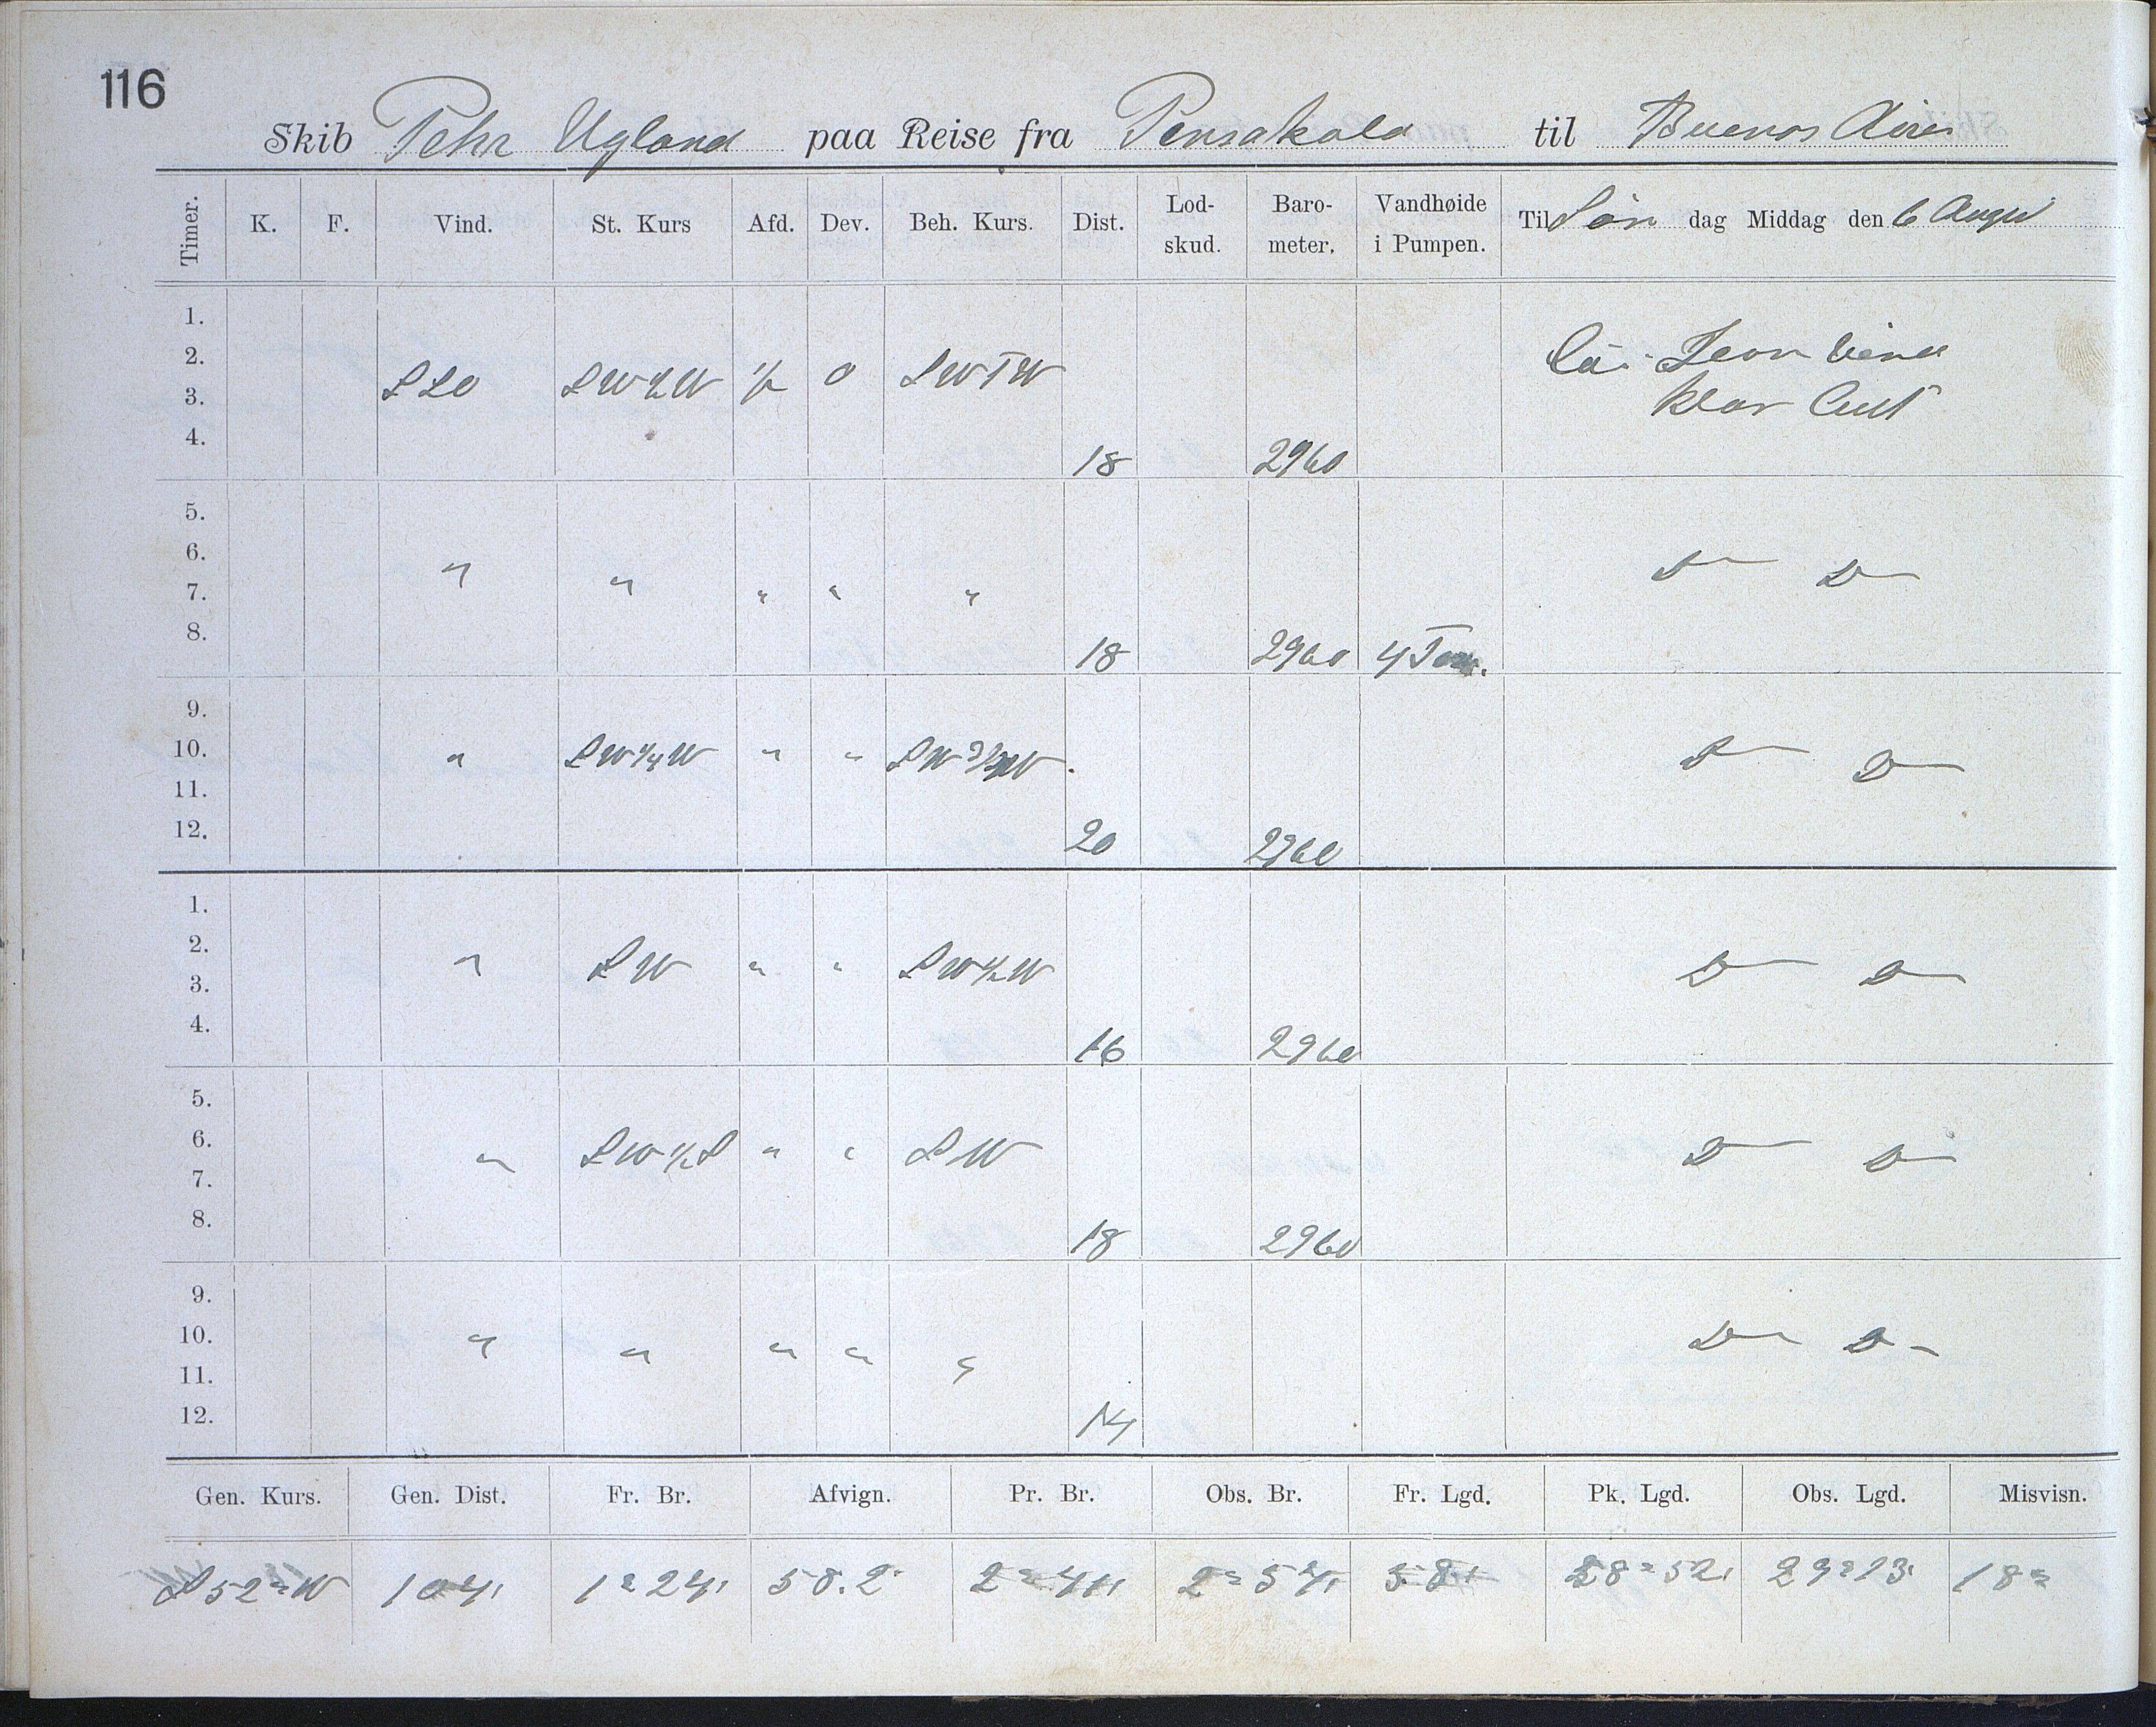 116
Skib Pehr Ugland paa Reise fra Pensakola til Buenos Aires
Timer. K. F. Vind. St. Kurs Afd. Dev. Beh. Kurs. Dist. Lod-skud. Baro-meter. Vandhøide i Pumpen. Til Søn dag Middag den 6 Augu
1.
2. Jevn
3. SSO SW½W ½ 0 SW klar Luft
4. 18 2960
5.
6. D— D—
7. " " " " "
8. 18 2960 4 Tom.
9.
10. " SW¼W " " SW¾W D— D—
11.
12. 20 2960
1.
2. " SW " " SW½W D— D—
3.
4. 16 2960
5.
6. " SW½S " " SW D— D—
7.
8. 18 2960
9.
10. " " " " " D— D—
11.
12. 14
Gen. Kurs. Gen. Dist. Fr. Br. Afvign. Pr. Br. Obs. Br. Fr. Lgd. Pk. Lgd. Obs. Lgd. Misvisn.
S52°W 104' 1°24' 2°54' 28°52' 29°13' 18°